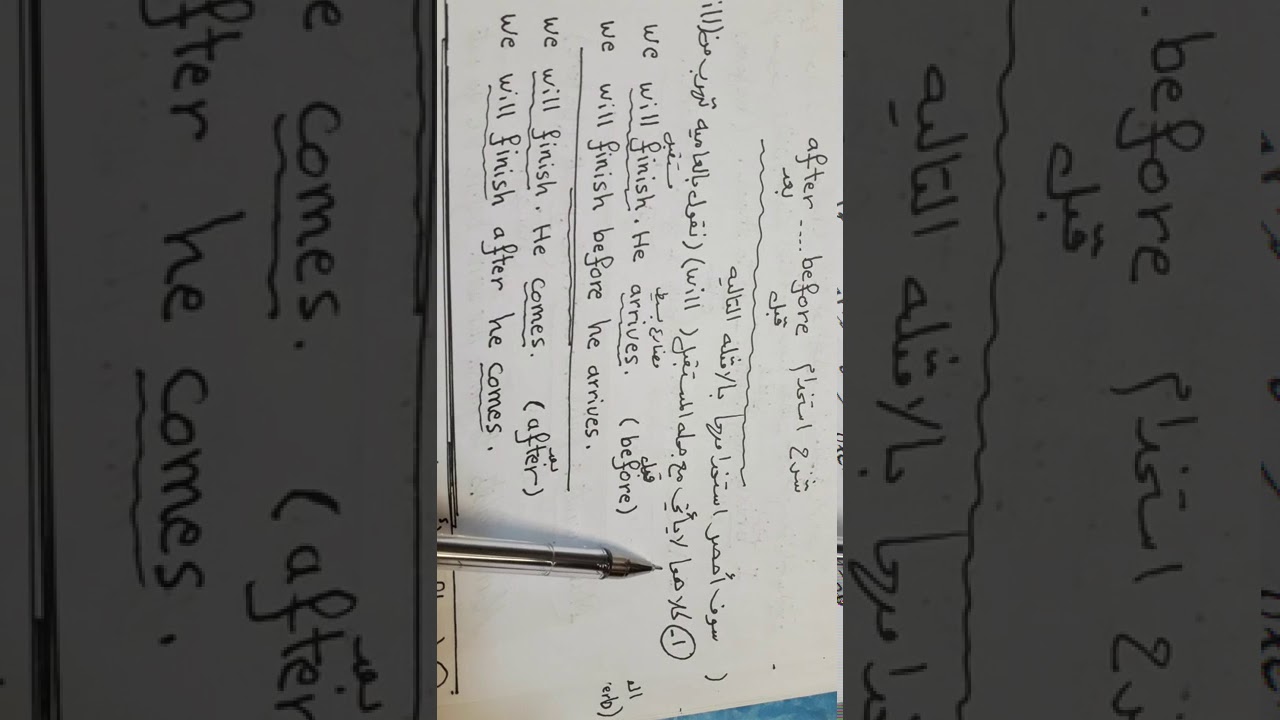 شرح استخدام after .... before
بعد قبل
سوف أحصر استخدامها بالامثله التاليه
1- كلاهما لا يأتي مع جمله المستقبل (will) (نقول بالعاميه تهرب من ال
مستقبل مضارع بسيط قبل
we will finish. He arrives. (before)
we will finish before he arrives.
بعد
we will finish. He comes. (after)
we will finish after he comes.